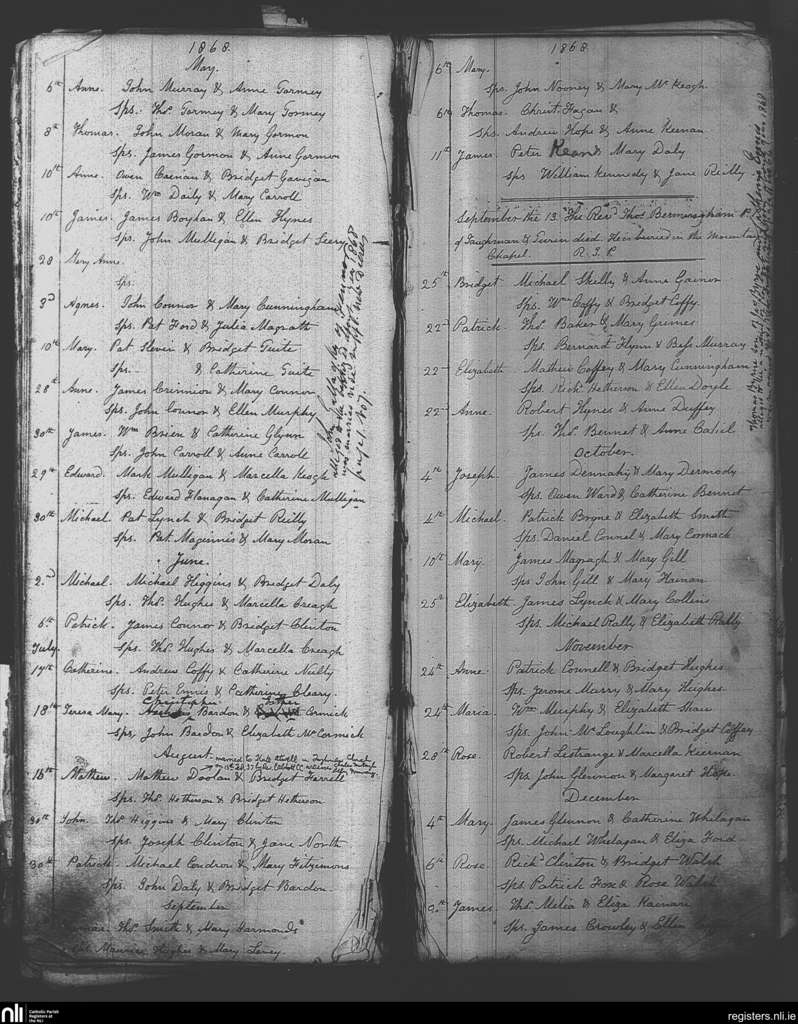 1868.
May.
6th Anne. John Murray & Anne Tormey
Sps. Thos. Tormey & Mary Tormey
8th Thomas. John Moran & Mary Gormon
Sps. James Gormon & Anne Gormon
10th Anne. Owen & Bridget Gavigan
Sps. Wm Daily & Mary Carroll
10th James. James Boyhan & Ellen Hynes
Sps. John Mulligan & Bridget Seery
28 Mary Anne.
Sps.
3d Agnes. John Connor & Mary Cunningham
Sps. Pat Ford & Julia Magrath
10th Mary. Pat Slevin & Bridget Tuite
Sps. & Catherine Tuite
28th Anne. James Crinnion & Mary Connor
Sps. John Connor & Ellen Murphy
30th James. Wm Brien & Catherine Glynn
Sps. John Carroll & Anne Carroll
29th Edward. Mark Mulligan & Marcella Keogh
Sps. Edward Flanagan & Catherine Mulligan
30th Michael. Pat Lynch & Bridget Reilly
Sps. Pat. Maginnis & Mary Moran
June.
2nd Michael. Michael Higgins & Bridget Daly
Sps. Thos. Hughes & Marcella Creagh
6th Patrick. James Connor & Bridget Clinton
July. Sps. Thos. Hughes & Marcella Creagh
17th Catherine. Andrew Coffy & Catherine Nulty
Sps. Peter Ennis & Catherine Cleary.
Christopher Esther
18th Teresa Mary. Bardon & Cormick
Sps. John Bardon & Elizabeth McCormick
August. married to
16th Mathew. Mathew Doolan & Bridget Farrell
Sps. Thos. Hetherson & Bridget Hetherson
30th John. Thos Higgins & Mary Clinton
Sps. Joseph Clinton & Jane North
30th Patrick. Michael Condron & Mary Fitzimons
Sps. John Daly & Bridget Bardon
September
Thos. Smith & Mary Harmonds
Maurice Hughes & Mary Leney.
John Gallagher
page 1. 1907.
1868
6th Mary.
Sps. John Nooney & Mary McKeogh
6th Thomas. Christ. Fagan &
Sps. Andrew Hope & Anne Keenan
11th James. Peter Keane & Mary Daly
Sps William Kennedy & Jane Reilly
September the 13. The Revd Thos. Bermingham P.
of Taughmon & Turen died. He is buried in the
Chapel. R.I.P.
25th Bridget Michael Skelly & Anne Gainor
Sps. Wm Coffy & Bridget Coffy
22d Patrick. Thos. Baker & Mary Grimes
Sps Bernard Flynn & Bess Murray
22d Elizabeth Mathew Coffey & Mary Cunningham
Sps. Richd. Hetherson & Ellen Doyle
22d Anne. Robert Hynes & Anne Duffey
Sps. Thos. Bennet & Anne Cahil
October.
4th Joseph. James Dennahy & Mary Dermody
Sps. Owen Ward & Catherine Bennet
4th Michael. Patrick Bryne & Elizabeth Smith
Sps. Daniel Connel & Mary Cormack
10th Mary. James Magragh & Mary Gill
Sps John Gill & Mary Hainan
25th Elizabeth James Lynch & Mary Collins
Sps. Michael Rally & Elizabeth Rally
November
24th Anne Patrick Connell & Bridget Hughes
Sps. Jerome Marry & Mary Hughes
24th Maria. Wm Murphy & Elizabeth Shaw
Sps. John McLoughlin & Bridget Coffey
28th Rose. Robert Lestrange & Marcella Keernan
Sps John Glennon & Margaret Hope
December
4th Mary James Glennon & Catherine Whelagan
Sps. Michael Whelagan & Eliza Ford
6th Rose. Richd Clinton & Bridget Walsh
Sps. Patrick Fox & Rose Walsh
James Thos. Melia & Eliza Kaenan
Sps. James Crowley & Ellen
nli
Catholic Parish
Registers at
the NLI
registers.nli.ie